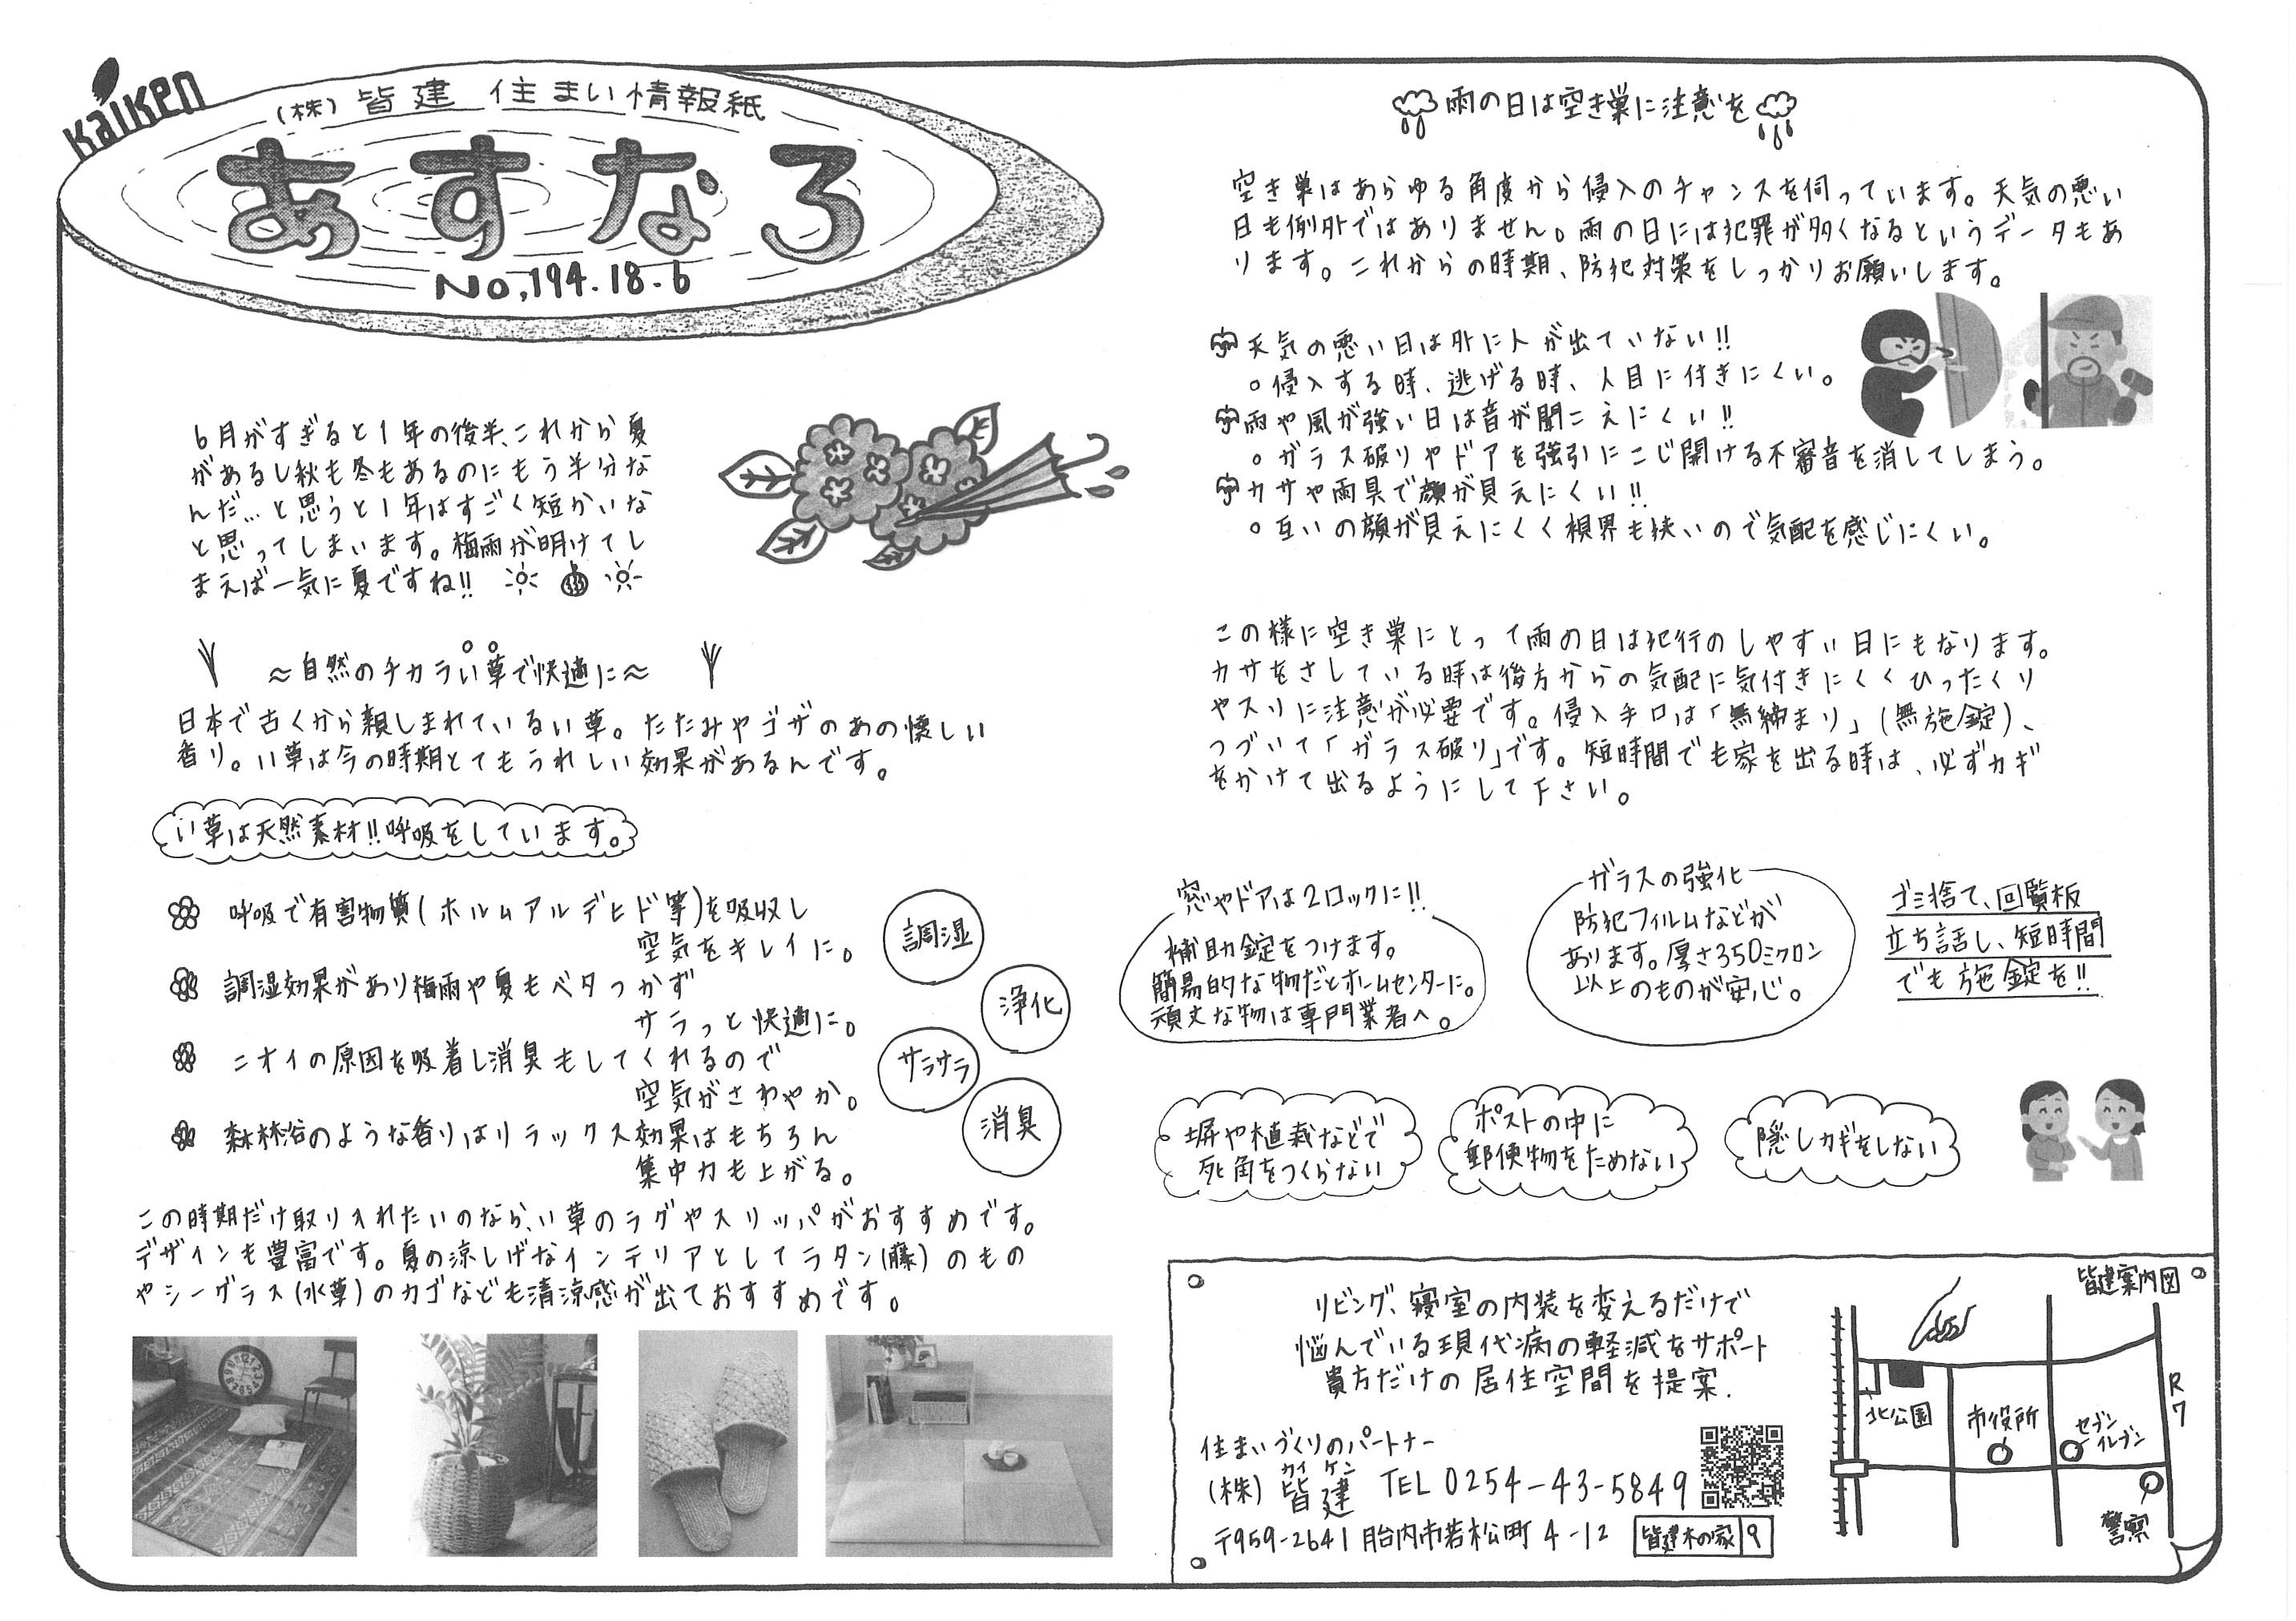 Kaiken
(株) 皆建 住まい情報紙
あすなろ
No,194.18.6
6月がすぎると1年の後半、これから夏
があるし秋も冬もあるのにもう半分な
んだ…と思うと1年はすごく短かいな
と思ってしまいます。梅雨が明けてし
まえば一気に夏ですね!!
～自然のチカラい草で快適に～
日本で古くから親しまれているい草。たたみやゴザのあの懐しい
香り。い草は今の時期とてもうれしい効果があるんです。
い草は天然素材!!呼吸をしています。
呼吸で有害物質(ホルムアルデヒド等)を吸収し
空気をキレイに。
調湿効果があり梅雨や夏もベタつかず
サラっと快適に。
ニオイの原因を吸着し消臭もしてくれるので
空気がさわやか。
森林浴のような香りはリラックス効果はもちろん
集中力も上がる。
調湿
浄化
サラサラ
消臭
この時期だけ取り入れたいのなら、い草のラグやスリッパがおすすめです。
デザインも豊富です。夏の涼しげなインテリアとしてラタン(藤)のもの
やシーグラス(水草)のカゴなども清涼感が出ておすすめです。
雨の日は空き巣に注意を
空き巣はあらゆる角度から侵入のチャンスを伺っています。天気の悪い
日も例外ではありません。雨の日には犯罪が多くなるというデータもあ
ります。これからの時期、防犯対策をしっかりお願いします。
天気の悪い日は外に人が出ていない!!
○侵入する時、逃げる時、人目に付きにくい。
雨や風が強い日は音が聞こえにくい!!
○ガラス破りやドアを強引にこじ開ける不審音を消してしまう。
カサや雨具で顔が見えにくい!!
○互いの顔が見えにくく視界も狭いので気配を感じにくい。
この様に空き巣にとって雨の日は犯行のしやすい日にもなります。
カサをさしている時は後方からの気配に気付きにくくひったくり
やスリに注意が必要です。侵入手口は「無締まり」(無施錠)、
つづいて「ガラス破り」です。短時間でも家を出る時は、必ずカギ
をかけて出るようにして下さい。
窓やドアは2ロックに!!
補助錠をつけます。
簡易的な物だとホームセンターに。
頑丈な物は専門業者へ。
ガラスの強化
防犯フィルムなどが
あります。厚さ350ミクロン
以上のものが安心。
ゴミ捨て、回覧板
立ち話し、短時間
でも施錠を!!
塀や植栽などで
死角をつくらない
ポストの中に
郵便物をためない
隠しカギをしない
リビング、寝室の内装を変えるだけで
悩んでいる現代病の軽減をサポート
貴方だけの居住空間を提案.
住まいづくりのパートナー
カイ ケン
(株) 皆建 TEL 0254-43-5849
〒959-2641 胎内市若松町 4-12
皆建木の家 9
皆建案内図
北公園
市役所
セブン
イレブン
R7
警察